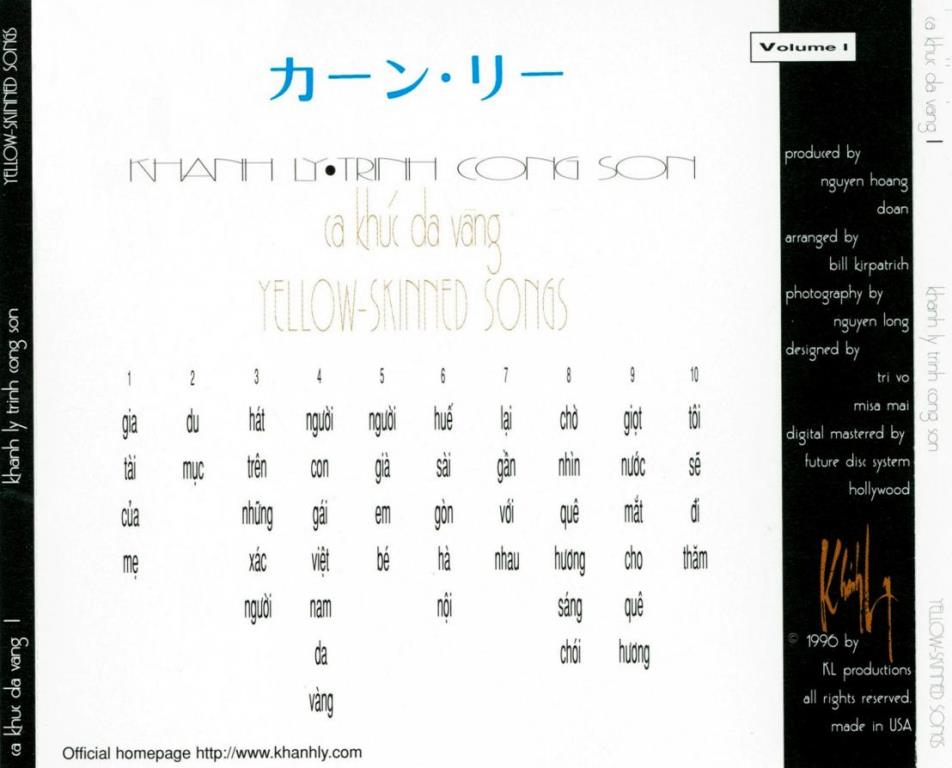 カーン・リー
KHANH LY•TRINH CONG SON
ca khúc da vàng
YELLOW-SKINNED SONGS
1 2 3 4 5 6 7 8 9 10
gia du hát người người huế lại chờ giọt tôi
tài mục trên con già sài gần nhìn nước sẽ
của những gái em gòn với quê mắt đi
mẹ xác việt bé hà nhau hương cho thăm
người nam nội sáng quê
da chói hương
vàng
Official homepage http://www.khanhly.com
Volume I
produced by
nguyen hoang
doan
arranged by
bill kirpatrich
photography by
nguyen long
designed by
tri vo
misa mai
digital mastered by
future disc system
hollywood
Khánh Ly
© 1996 by
KL productions
all rights reserved.
made in USA
ca khuc da vang I khanh ly trinh cong son YELLOW-SKINNED SONGS
ca khúc da vàng I khanh ly trinh cong son YELLOW-SKINNED SONGS